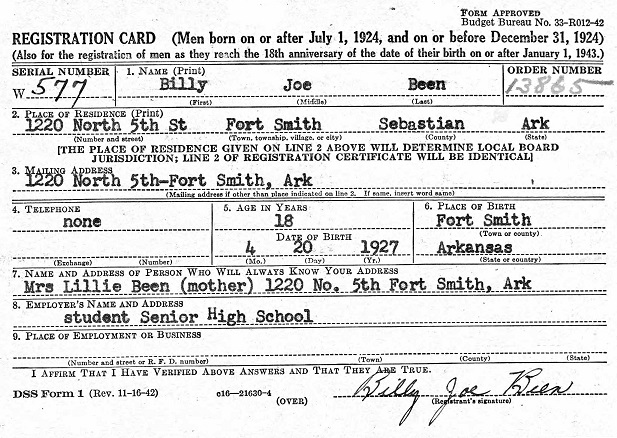 FORM APPROVED
Budget Bureau No. 33-R012-42
REGISTRATION CARD (Men born on or after July 1, 1924, and on or before December 31, 1924)
(Also for the registration of men as they reach the 18th anniversary of the date of their birth on or after January 1, 1943.)
SERIAL NUMBER 1. NAME (Print) ORDER NUMBER
W 577 Billy Joe Been 13865
(First) (Middle) (Last)
2. PLACE OF RESIDENCE (Print)
1220 North 5th St Fort Smith Sebastian Ark
(Number and street) (Town, township, village, or city) (County) (State)
[THE PLACE OF RESIDENCE GIVEN ON LINE 2 ABOVE WILL DETERMINE LOCAL BOARD
JURISDICTION; LINE 2 OF REGISTRATION CERTIFICATE WILL BE IDENTICAL]
3. MAILING ADDRESS
1220 North 5th-Fort Smith, Ark
(Mailing address if other than place indicated on line 2. If same, insert word same)
4. TELEPHONE 5. AGE IN YEARS 6. PLACE OF BIRTH
none 18 Fort Smith
DATE OF BIRTH (Town or county)
4 20 1927 Arkansas
(Exchange) (Number) (Mo.) (Day) (Yr.) (State or country)
7. NAME AND ADDRESS OF PERSON WHO WILL ALWAYS KNOW YOUR ADDRESS
Mrs Lillie Been (mother) 1220 No. 5th Fort Smith, Ark
8. EMPLOYER'S NAME AND ADDRESS
student Senior High School
9. PLACE OF EMPLOYMENT OR BUSINESS
(Number and street or R. F. D. number) (Town) (County) (State)
I AFFIRM THAT I HAVE VERIFIED ABOVE ANSWERS AND THAT THEY ARE TRUE.
DSS Form 1 (Rev. 11-16-42) c16—21630-4 Billy Joe Been
(OVER) (Registrant's signature)